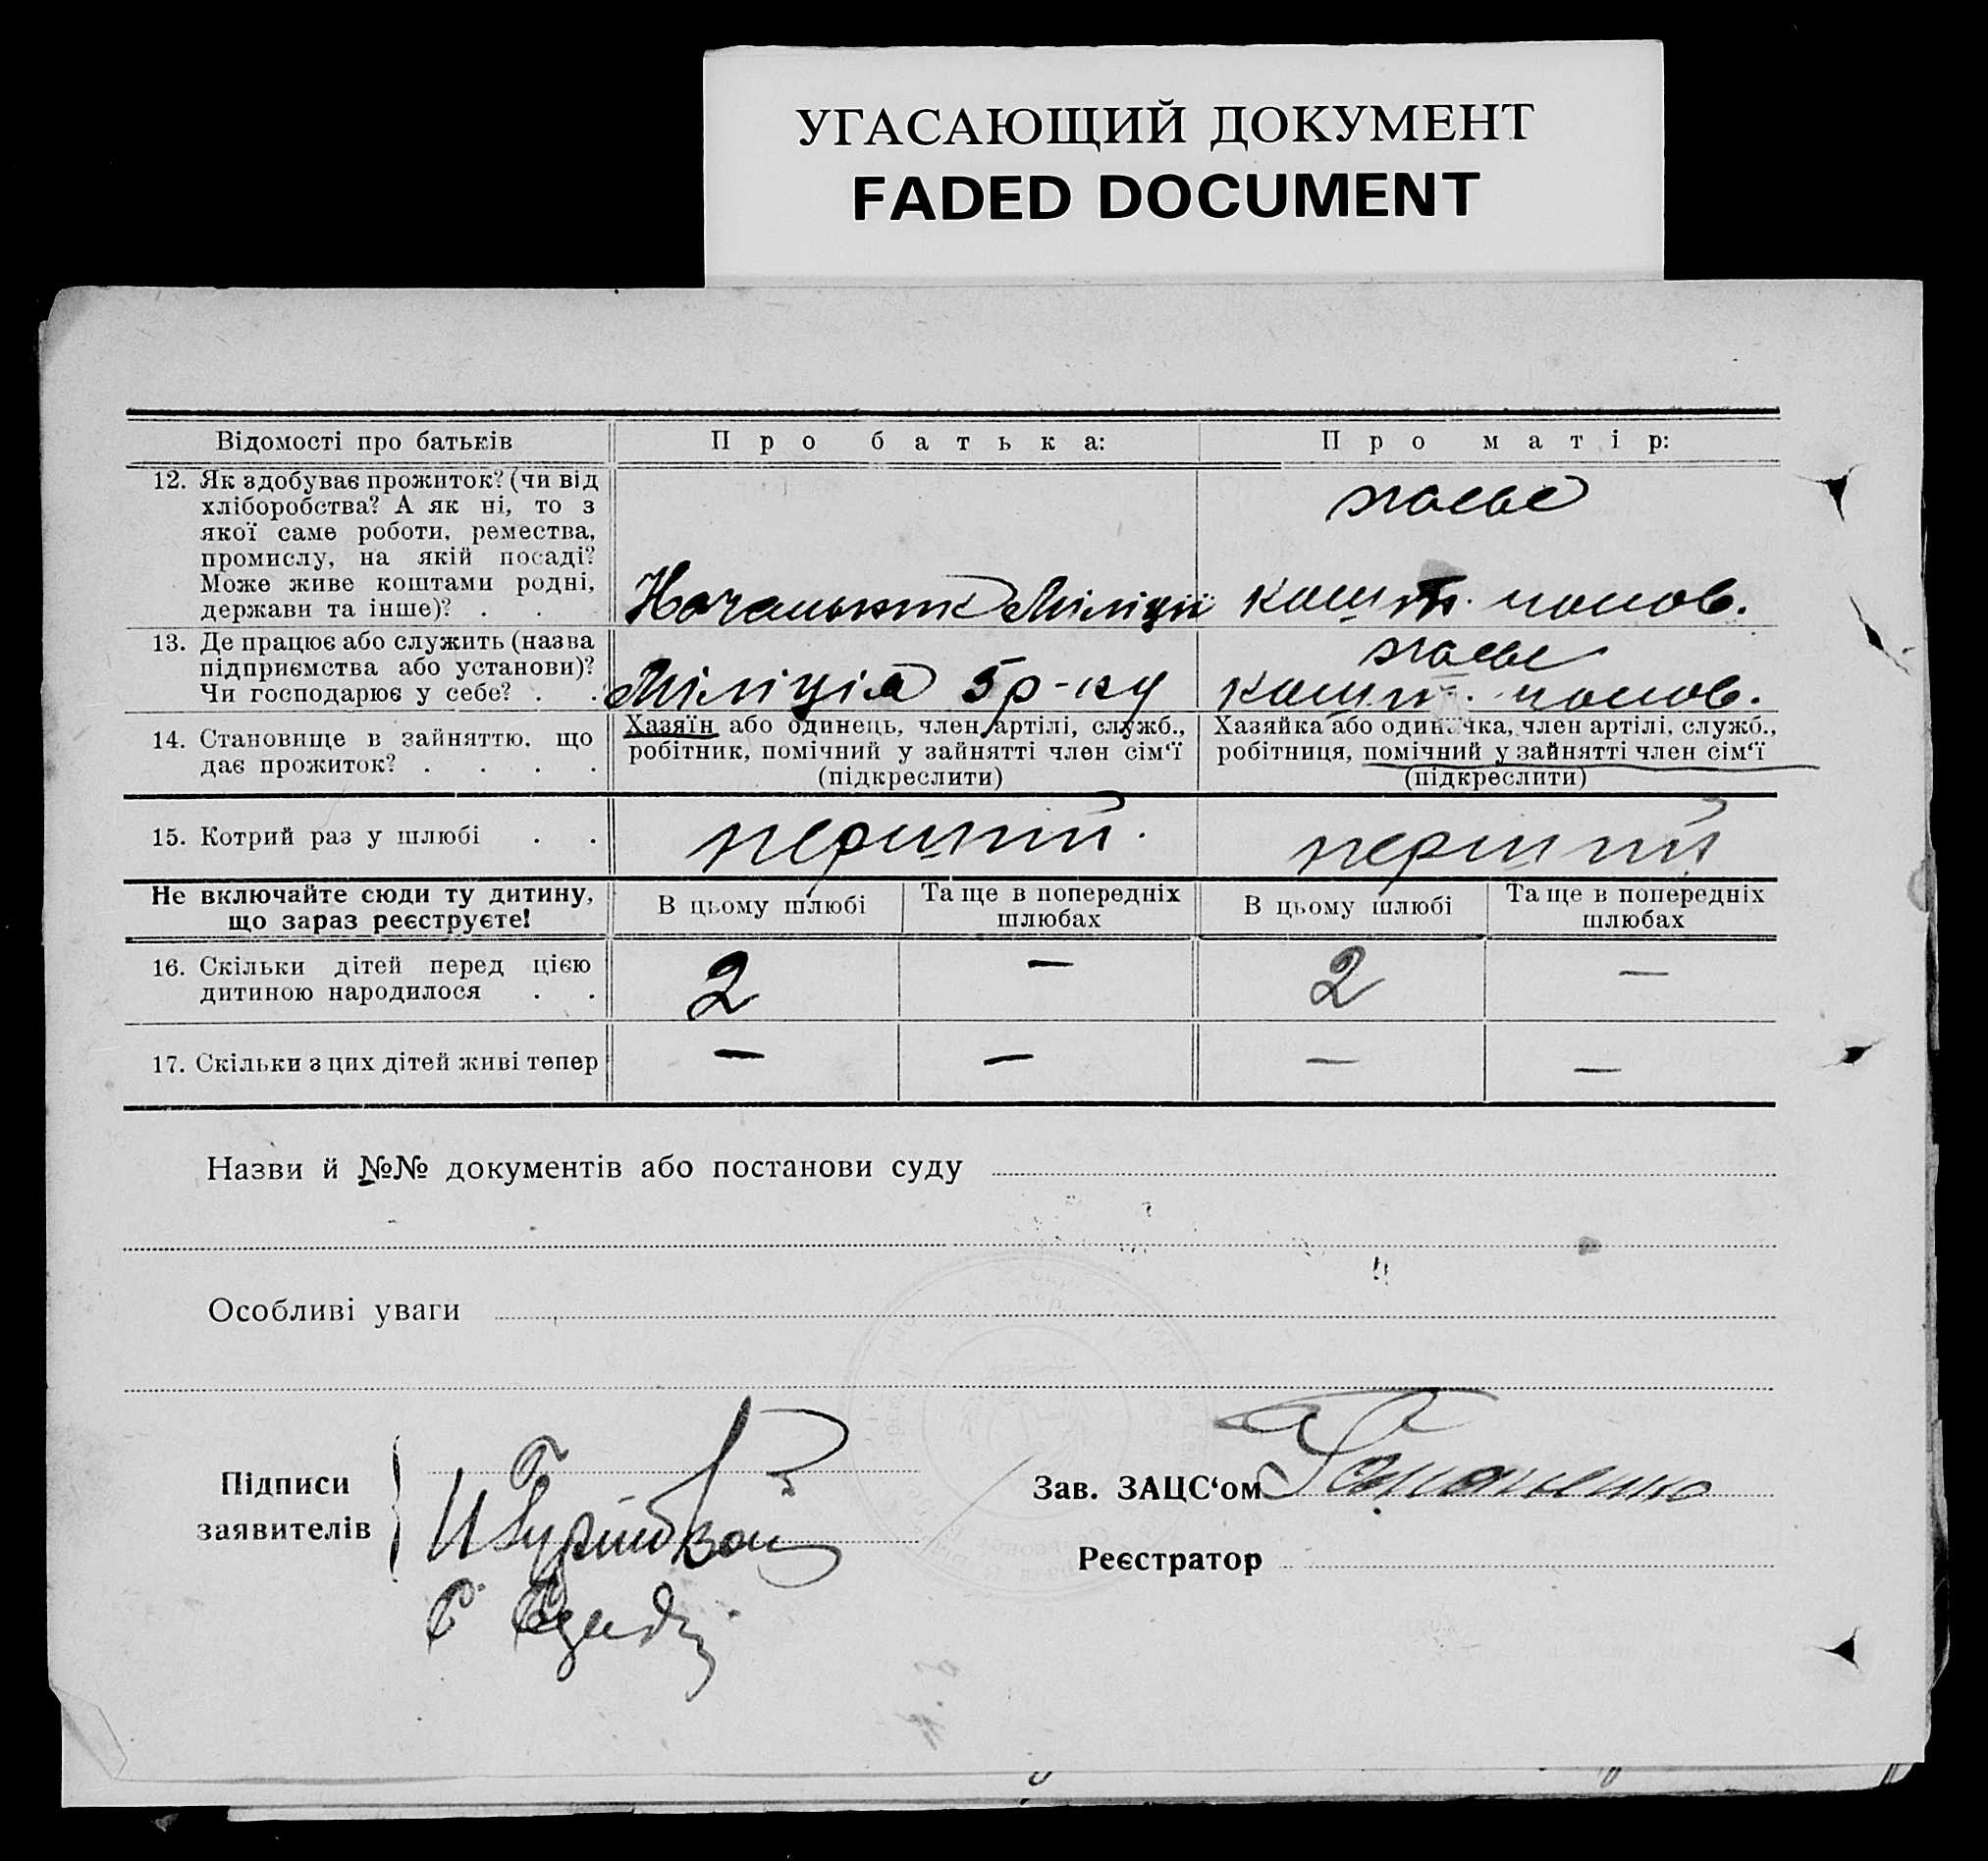 УГАСАЮЩИЙ ДОКУМЕНТ
FADED DOCUMENT
Відомості про батьків
Про батька:
Про матір:
12. Як здобуває прожиток? (чи від
хліборобства? А як ні, то з
якої саме роботи, ремества,
промислу, на якій посаді?
Може живе коштами родні,
держави та інше)? . . .
Начальник Міліції
живе
кошт. чолов.
13. Де працює або служить (назва
підприємства або установи)?
Чи господарює у себе? . .
Міліція 5 р-ну
живе
кошт. чолов.
14. Становище в зайняттю, що
дає прожиток? . . . .
Хазяїн або одинець, член артілі, служб.,
робітник, помічний у зайнятті член сім‘ї
(підкреслити)
Хазяйка або одиначка, член артілі, служб.,
робітниця, помічний у зайнятті член сім‘ї
(підкреслити)
15. Котрий раз у шлюбі . .
перший.
перший
Не включайте сюди ту дитину,
що зараз реєструєте!
В цьому шлюбі
Та ще в попередніх
шлюбах
В цьому шлюбі
Та ще в попередніх
шлюбах
16. Скільки дітей перед цією
дитиною народилося . .
2
—
2
—
17. Скільки з цих дітей живі тепер
—
—
—
—
Назви й №№ документів або постанови суду
Особливі уваги
Підписи
заявителів
Зав. ЗАЦС‘ом
Реєстратор